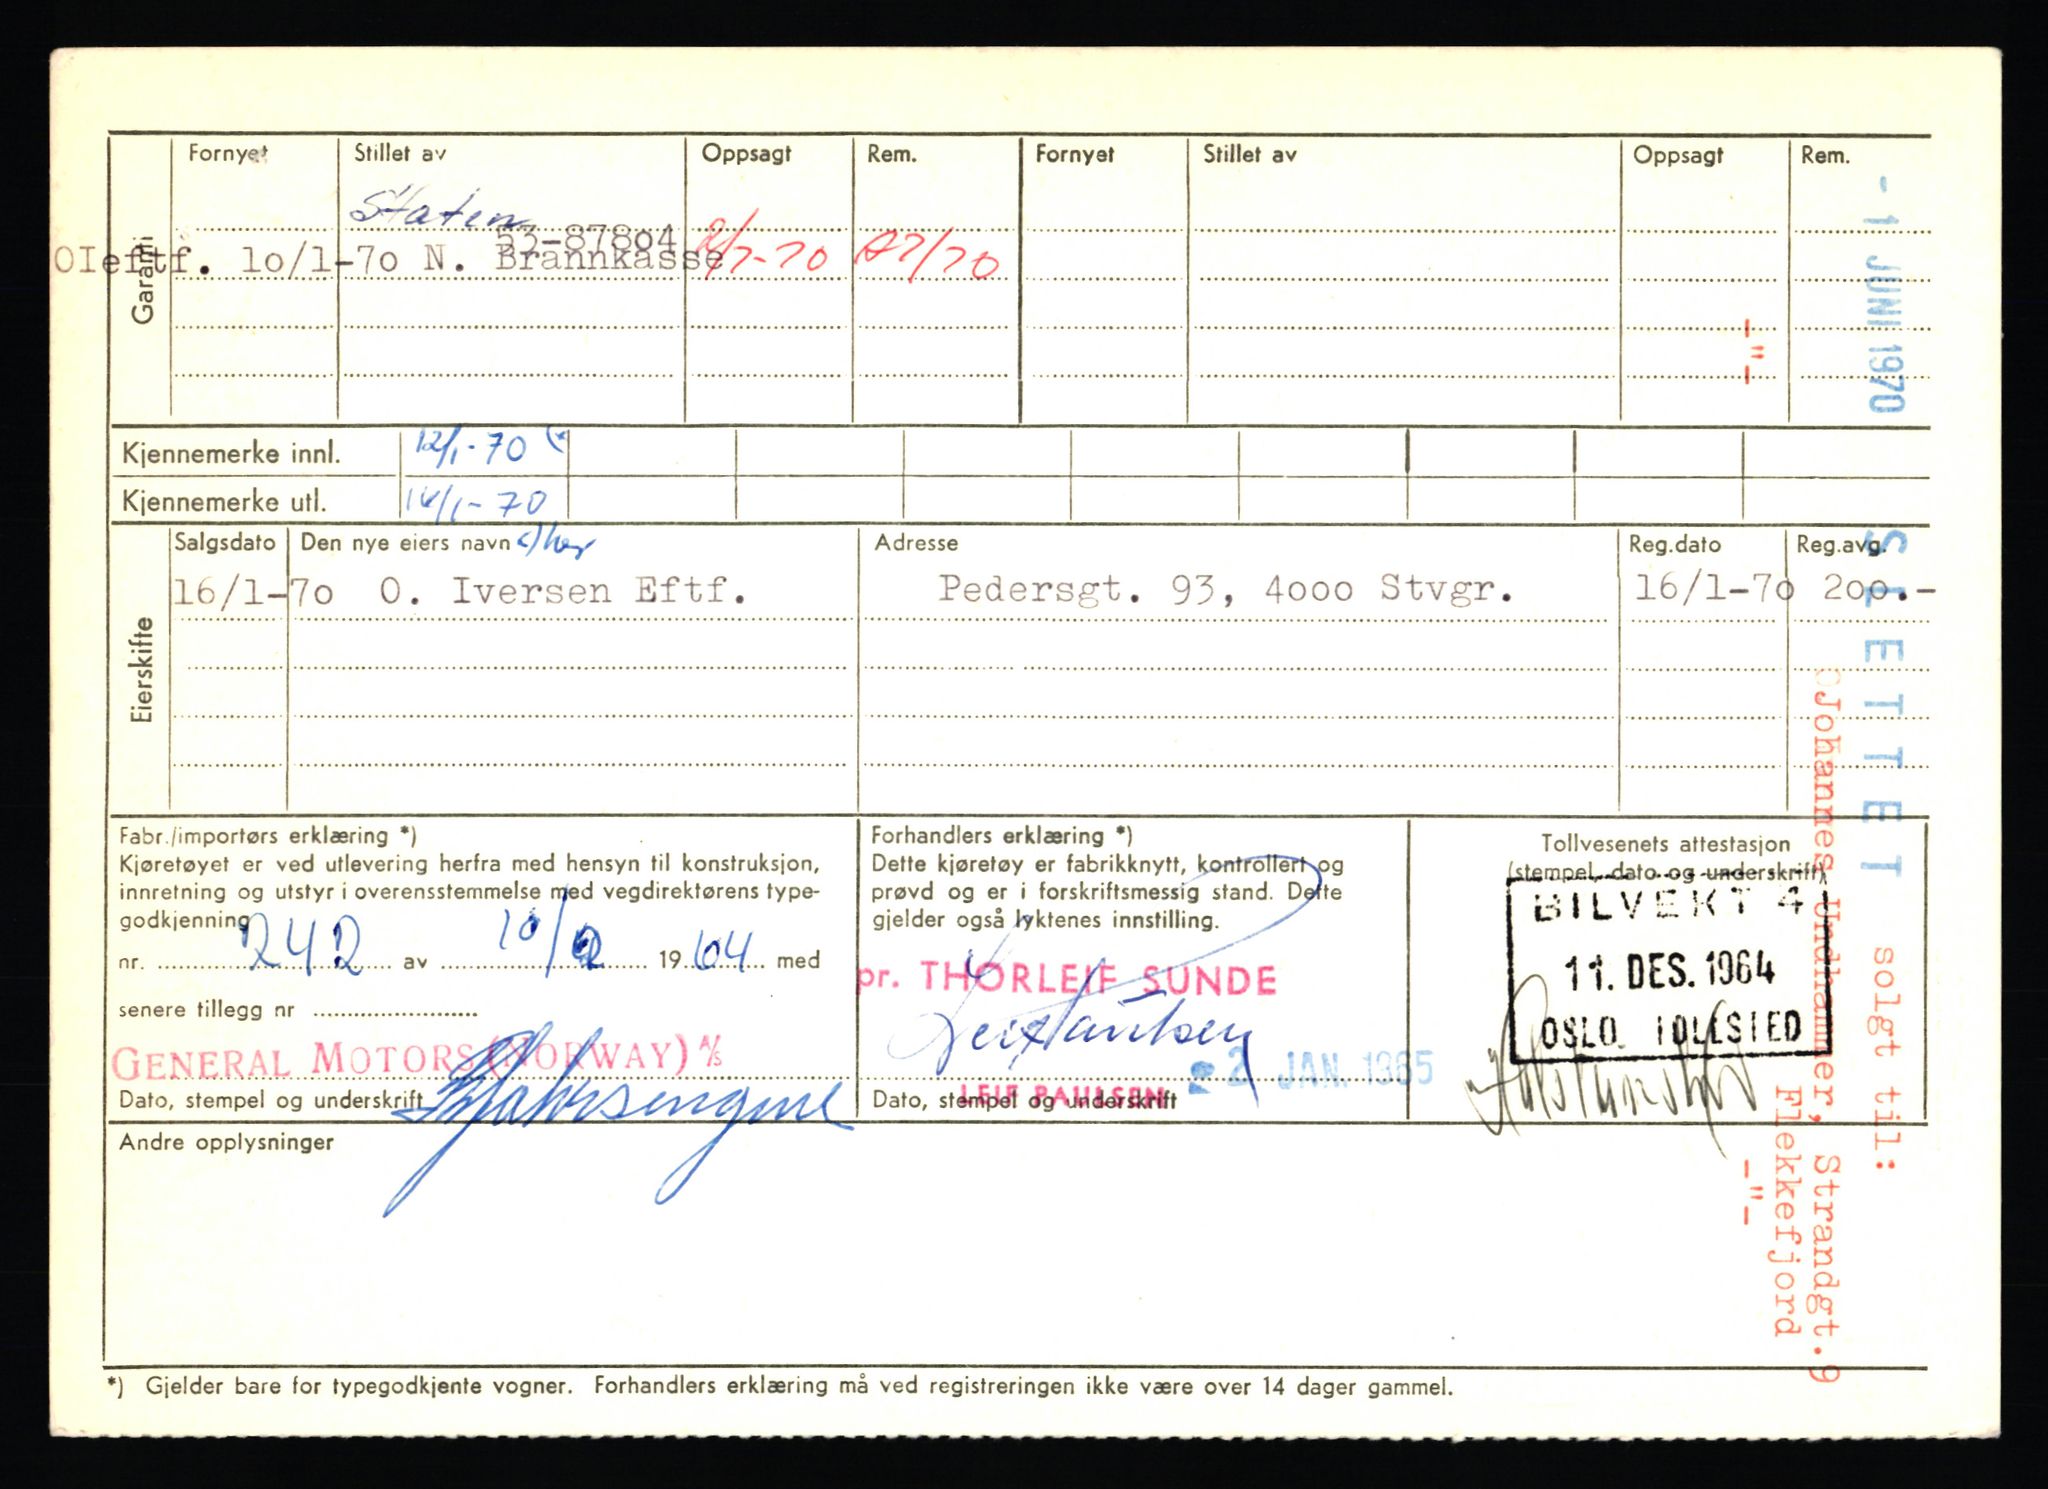 Garanti
Fornyet Stillet av Oppsagt Rem. Fornyet Stillet av Oppsagt Rem.
Staten
53-87804
OIeftf. 10/1-70 N. Brannkasse 2/7-70 A7/70
-"-
- 1 JUNI 1970
Kjennemerke innl. 12/1-70
Kjennemerke utl. 14/1-70
Eierskifte
Salgsdato Den nye eiers navn Adresse Reg.dato Reg.avg.
16/1-70 O. Iversen Eftf. Pedersgt. 93, 4000 Stvgr. 16/1-70 200.-
SLETTET solgt til:
Johannes Undhammer, Strandgt.9
Flekkefjord
-"-
Fabr./importørs erklæring *)
Kjøretøyet er ved utlevering herfra med hensyn til konstruksjon,
innretning og utstyr i overensstemmelse med vegdirektørens type-
godkjenning
nr. 242 av 10/ 1964 med
senere tillegg nr
GENERAL MOTORS (NORWAY) A/S
Dato, stempel og underskrift
Forhandlers erklæring *)
Dette kjøretøy er fabrikknytt, kontrollert og
prøvd og er i forskriftsmessig stand. Dette
gjelder også lyktenes innstilling.
pr. THORLEIF SUNDE
Leif Paulsen
2 JAN. 1965
LEIF PAULSEN
Dato, stempel og underskrift
Tollvesenets attestasjon
(stempel, dato og underskrift)
BILVEKT 4
11. DES. 1964
OSLO TOLLSTED
Andre opplysninger
*) Gjelder bare for typegodkjente vogner. Forhandlers erklæring må ved registreringen ikke være over 14 dager gammel.